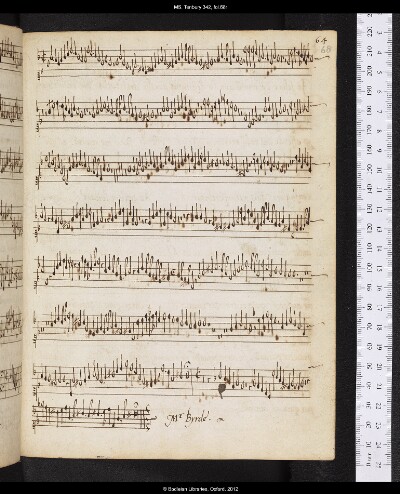 MS. Tenbury 342, fol.68r
64
68
Mr Byrde.
© Bodleian Libraries, Oxford, 2012